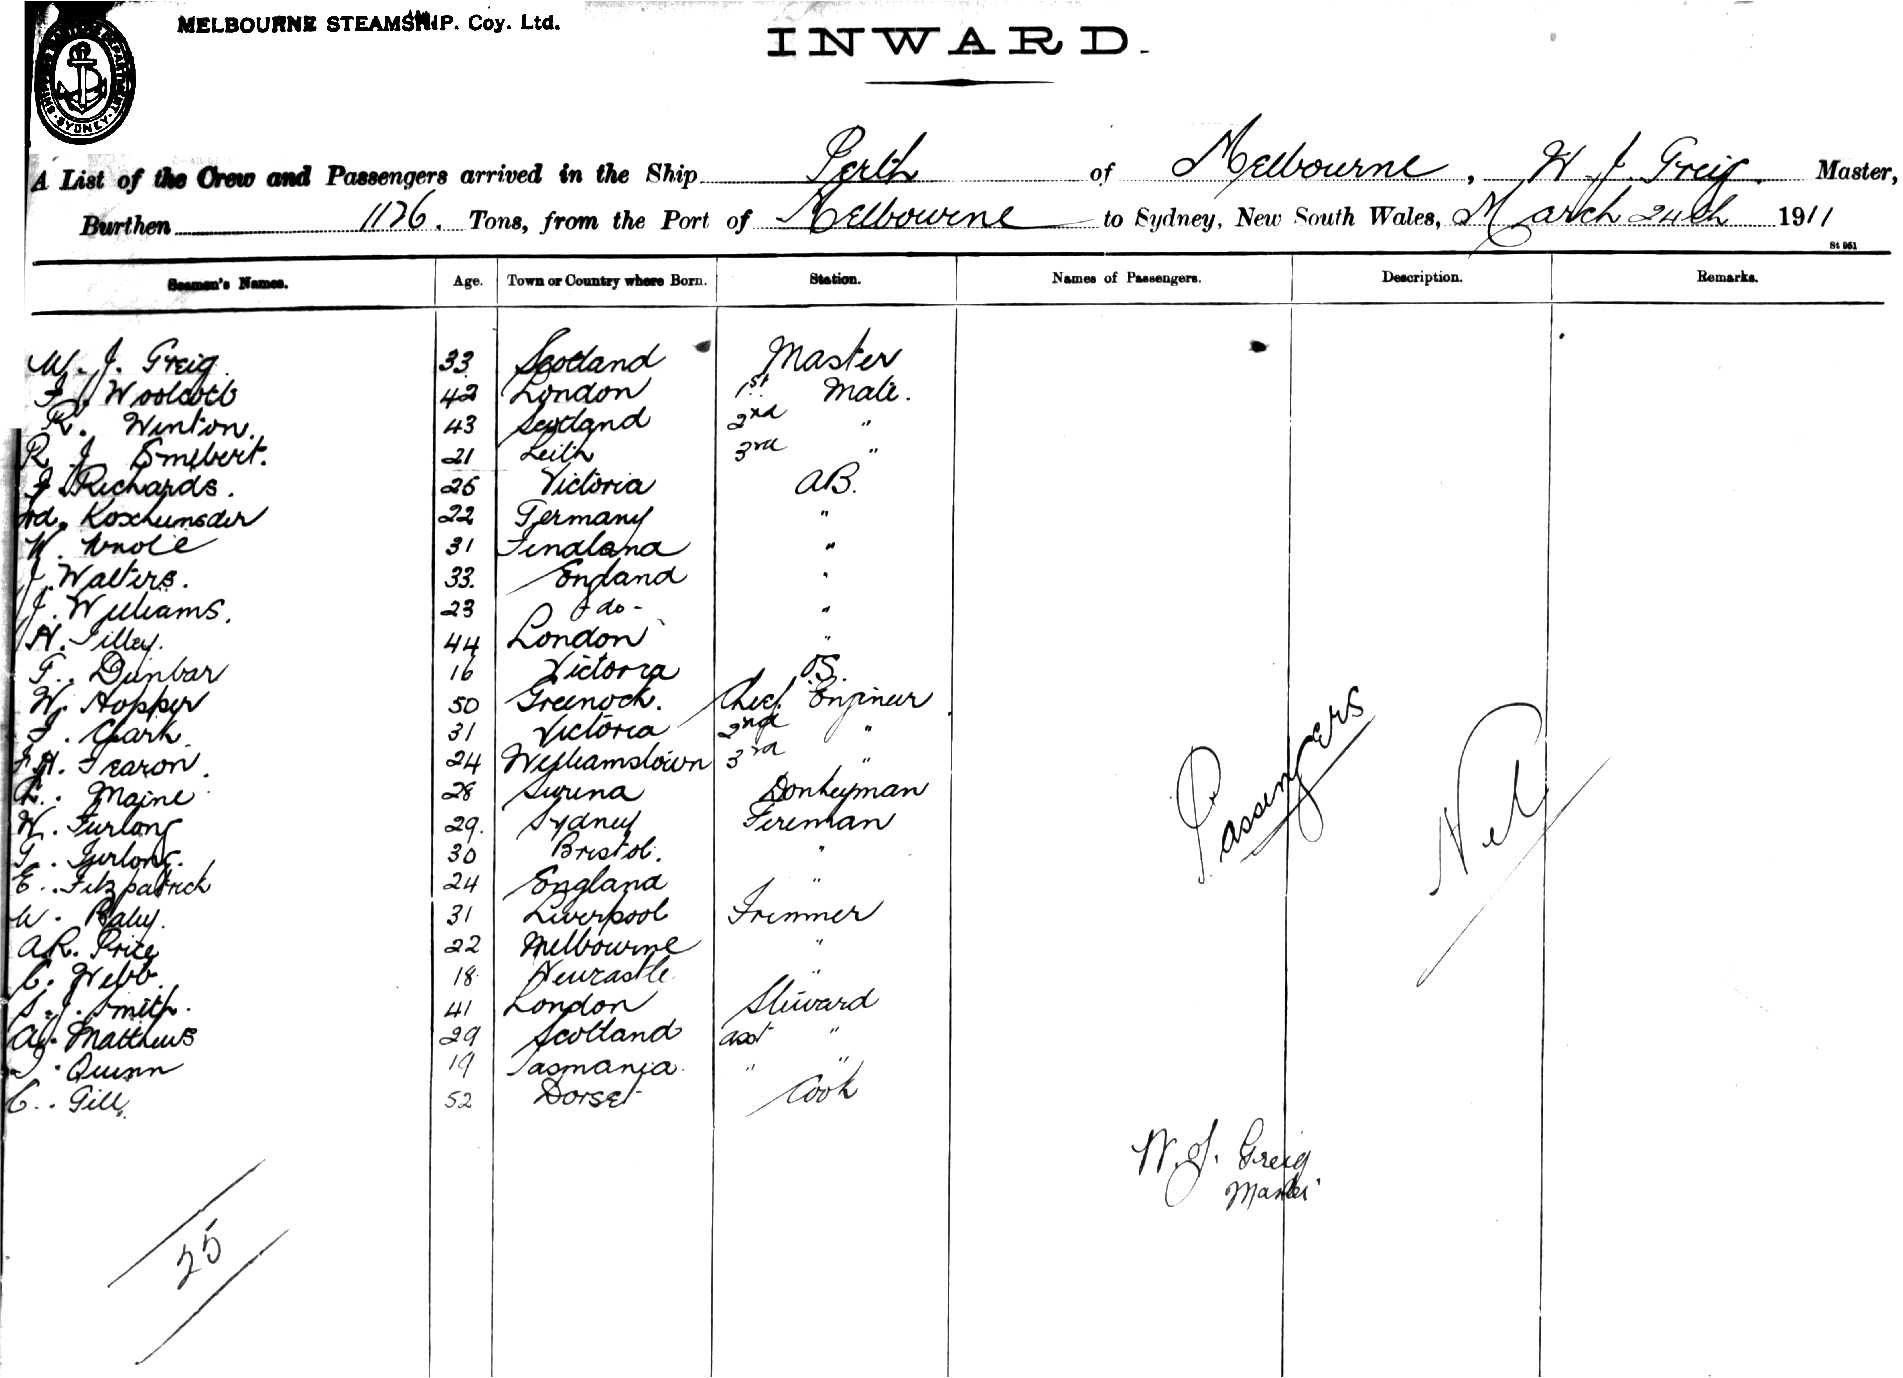 MELBOURNE STEAMSHIP. Coy. Ltd.
INWARD.
SYDNEY
A List of the Crew and Passengers arrived in the Ship Perth of Melbourne, W. J. Greig. Master,
Burthen 1126. Tons, from the Port of Melbourne to Sydney, New South Wales, March 24th 1911
St 951
Seamen's Names. Age. Town or Country where Born. Station. Names of Passengers. Description. Remarks.
W. J. Greig 33 Scotland Master
F. Woolcott 42 London 1st Mate.
R. Winton. 43 Scotland 2nd "
R J 21 Leith 3rd "
J Richards. 26 Victoria AB.
22 Germany "
W. 31 Findland "
J. Walters. 33. England "
J. Williams. 23 - do - "
H. Tilley. 44 London "
G. Dunbar 16 Victoria OS.
W. Hopper 50 Greenock. Chief Engineer
J. Clark 31 Victoria 2nd "
J. H. Fearon. 24 Williamstown 3rd "
Maine 28 Donkeyman
W. Furlong 29. Sydney Fireman
G. Furlong. 30 Bristol. "
E. Fitzpatrick 24 England "
W. Raby. 31 Liverpool Trimmer
A.R. Price 22 Melbourne "
C. Webb. 18 Newcastle "
S. J. Smith. 41 London Steward
A. Matthews 29 Scotland asst "
J. Quinn 19 Tasmania. " "
C. Gill. 52 Dorset Cook
Passengers Nil
W. J. Greig
Master
25